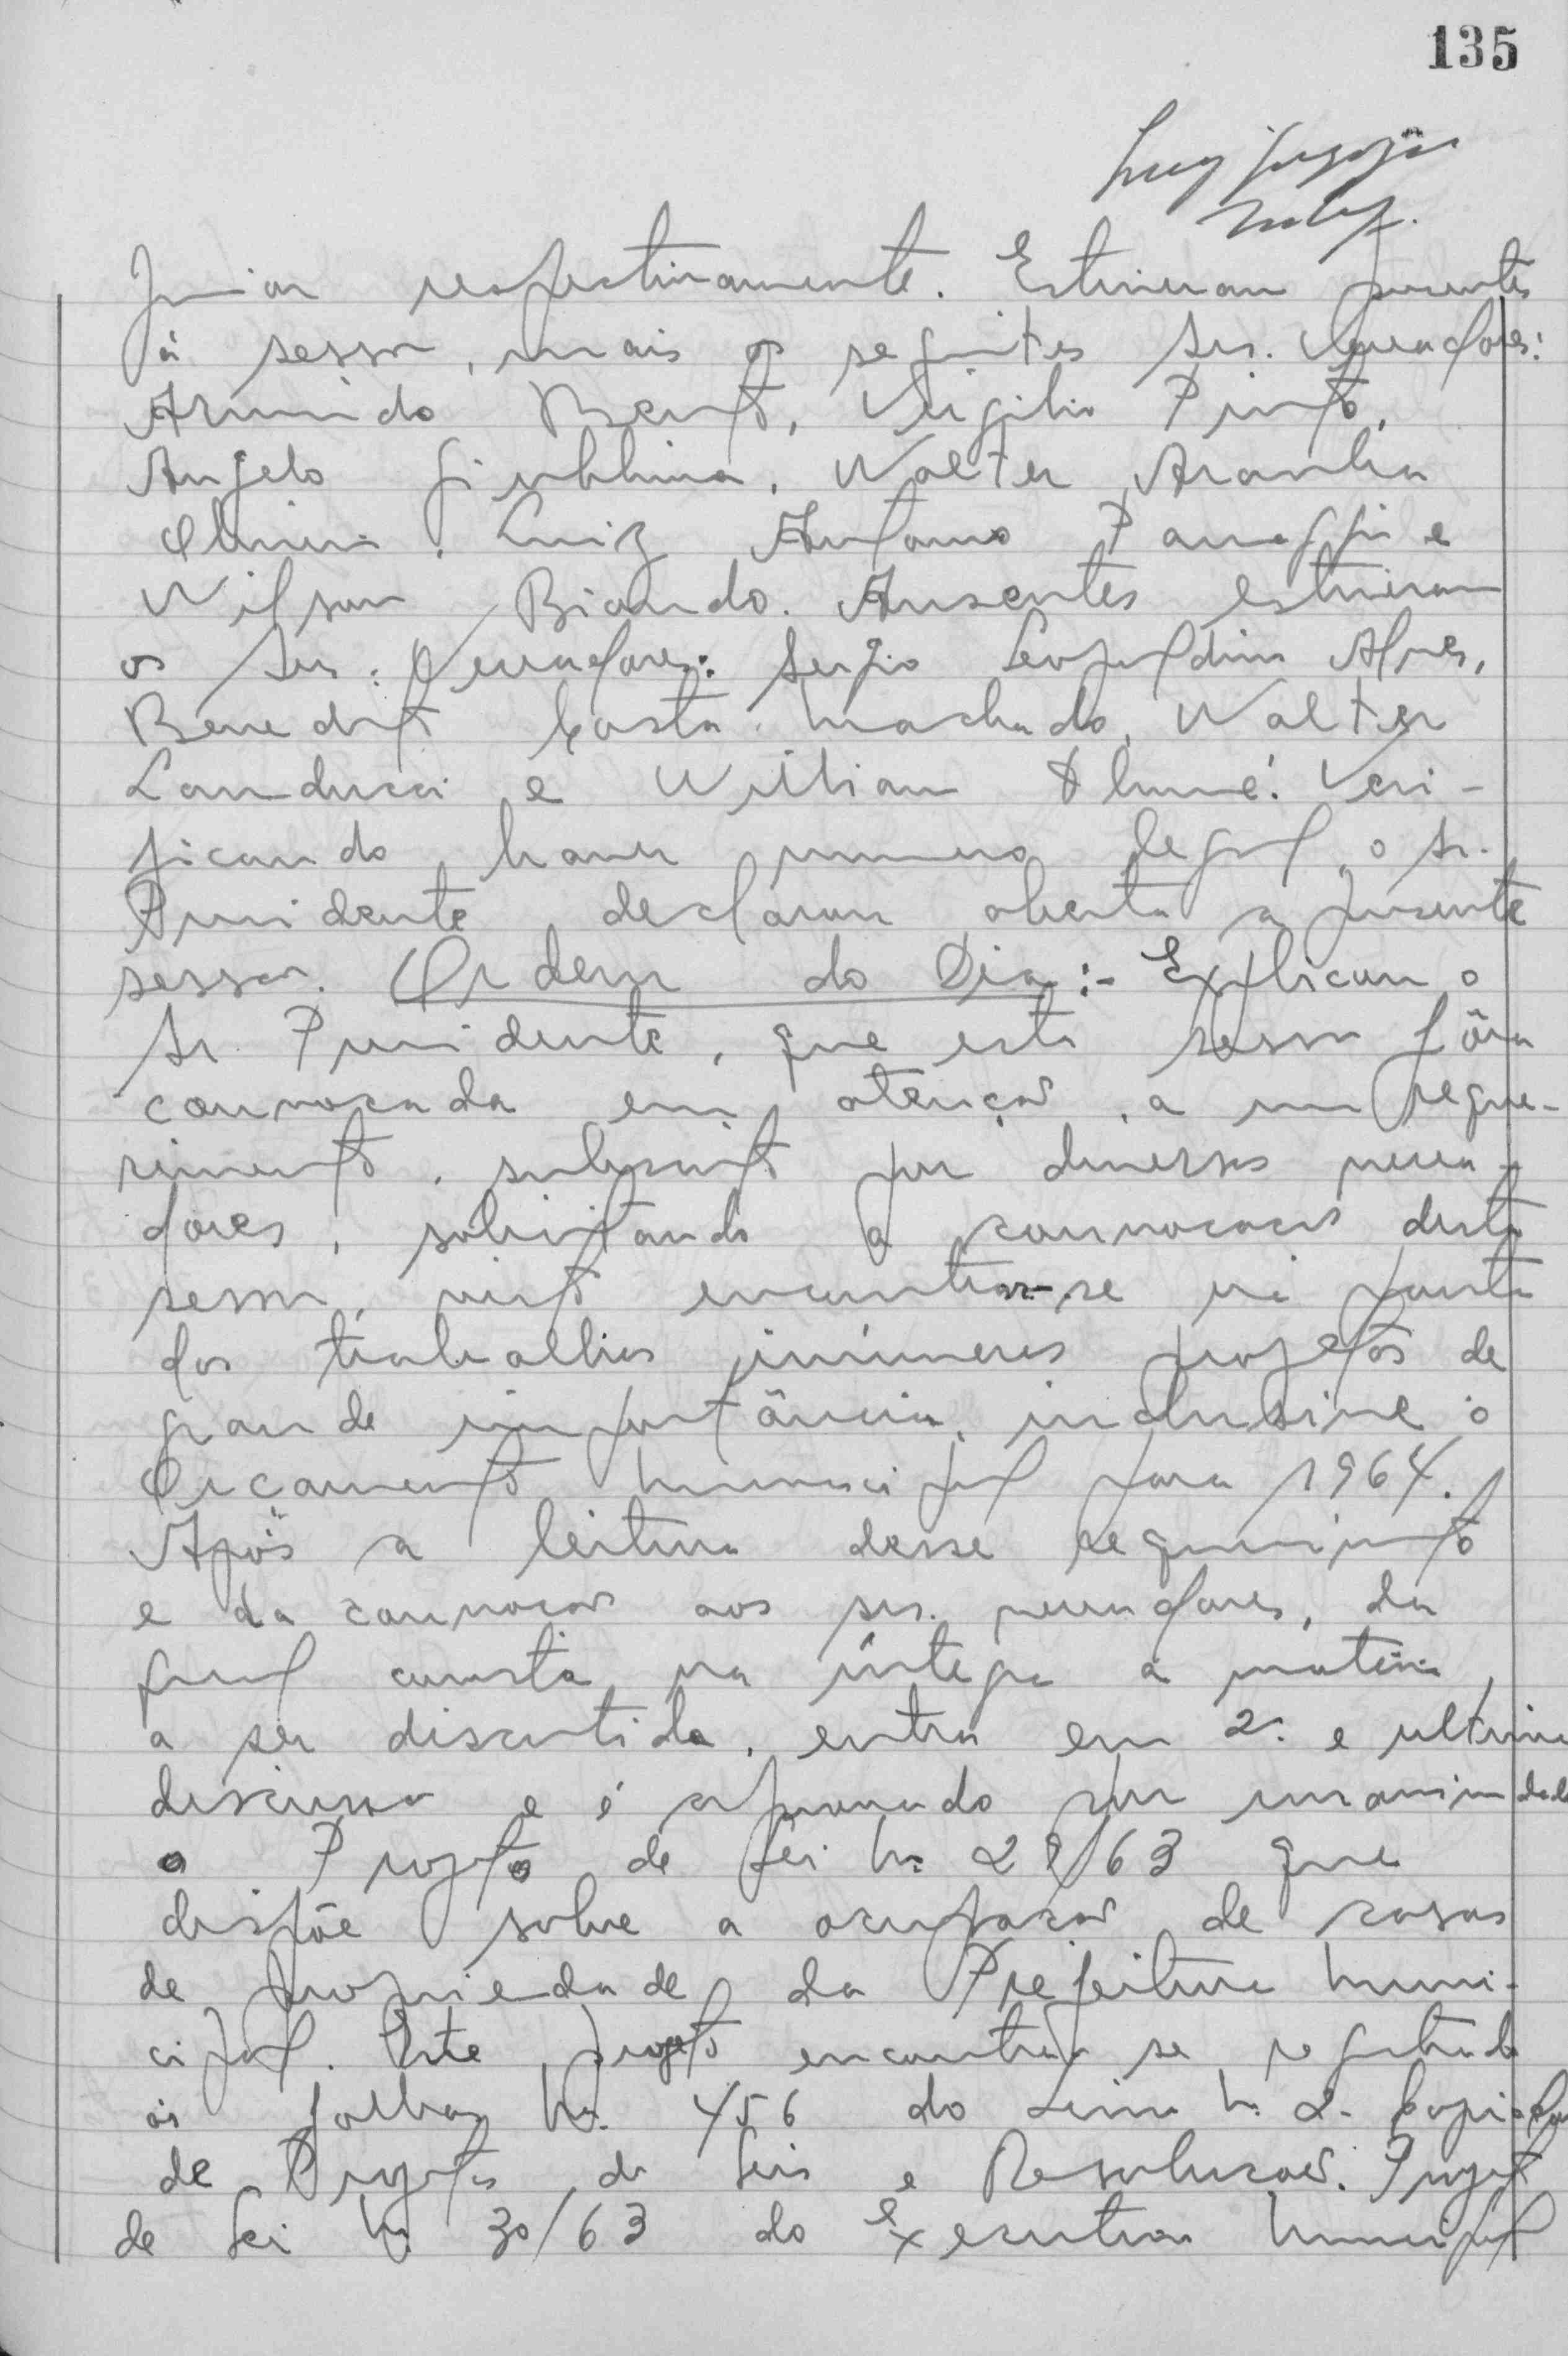 135
Junior respectivamente. Estiveram presentes
à sessão, mais os seguintes Srs. Vereadores:
Armindo Bento, Virgilio Pinto,
Angelo Giubbina, Walter Aranha
Oliveira, Luiz Antonio Panaggio e
Wilson Biondo. Ausentes estiveram
os Srs. Vereadores: Sergio Leopoldino Alves,
Benedito Costa Machado, Walter
Landucci e Willian Aluné. Veri-
ficando haver numero legal, o Sr.
Presidente declarou aberta a presente
sessão. Ordem do Dia:- Explicou o
Sr. Presidente, que esta sessão fôra
convocada em atenção, a um reque-
rimento, subscrito por diversos verea-
dores, solicitando a convocação desta
sessão, visto encontrar-se na pauta
dos trabalhos inúmeros projetos de
grande importância, inclusive o
Orçamento Municipal para 1964.
Após a leitura desse requerimento
e da convocação aos srs. vereadores, da
qual consta na íntegra a matéria,
a ser discutida, entra em 2ª. e ultima
discussão e é aprovado por unanimidade
o Projeto de Lei Nº 28/63 que
dispõe sobre a ocupação de casas
de propriedade da Prefeitura Muni-
cipal. Este projeto encontra se registrado
ás folhas Nº 456 do Livro Nº 2. Copiador
de Projetos de Leis e Resolução. Projeto
de Lei Nº 30/63 do Executivo Municipal